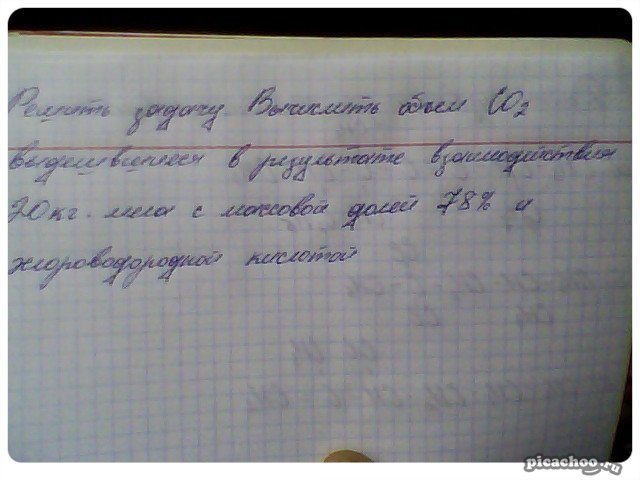 Решить задачу Вычислить объем CO2
выделившиеся в результате взаимодействия
20кг. мела с массовой долей 78% и
хлороводородной кислотой
picachoo.ru